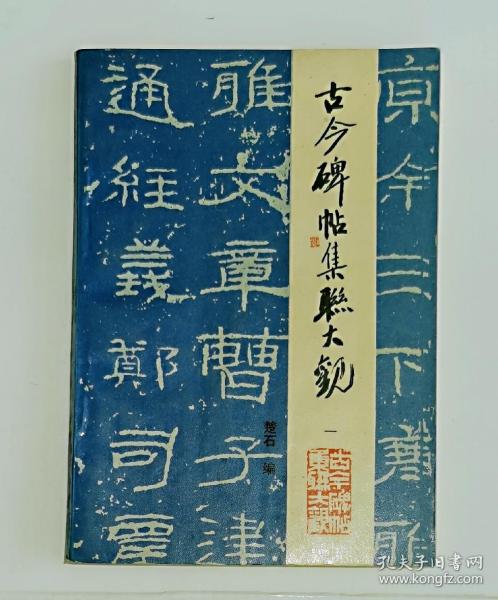 古今碑帖集聯大觀
一
楚石 編
京余三下
雅文章曹子津
通經義鄭司
古今碑帖
集聯大觀
孔夫子旧书网
www.kongfz.com